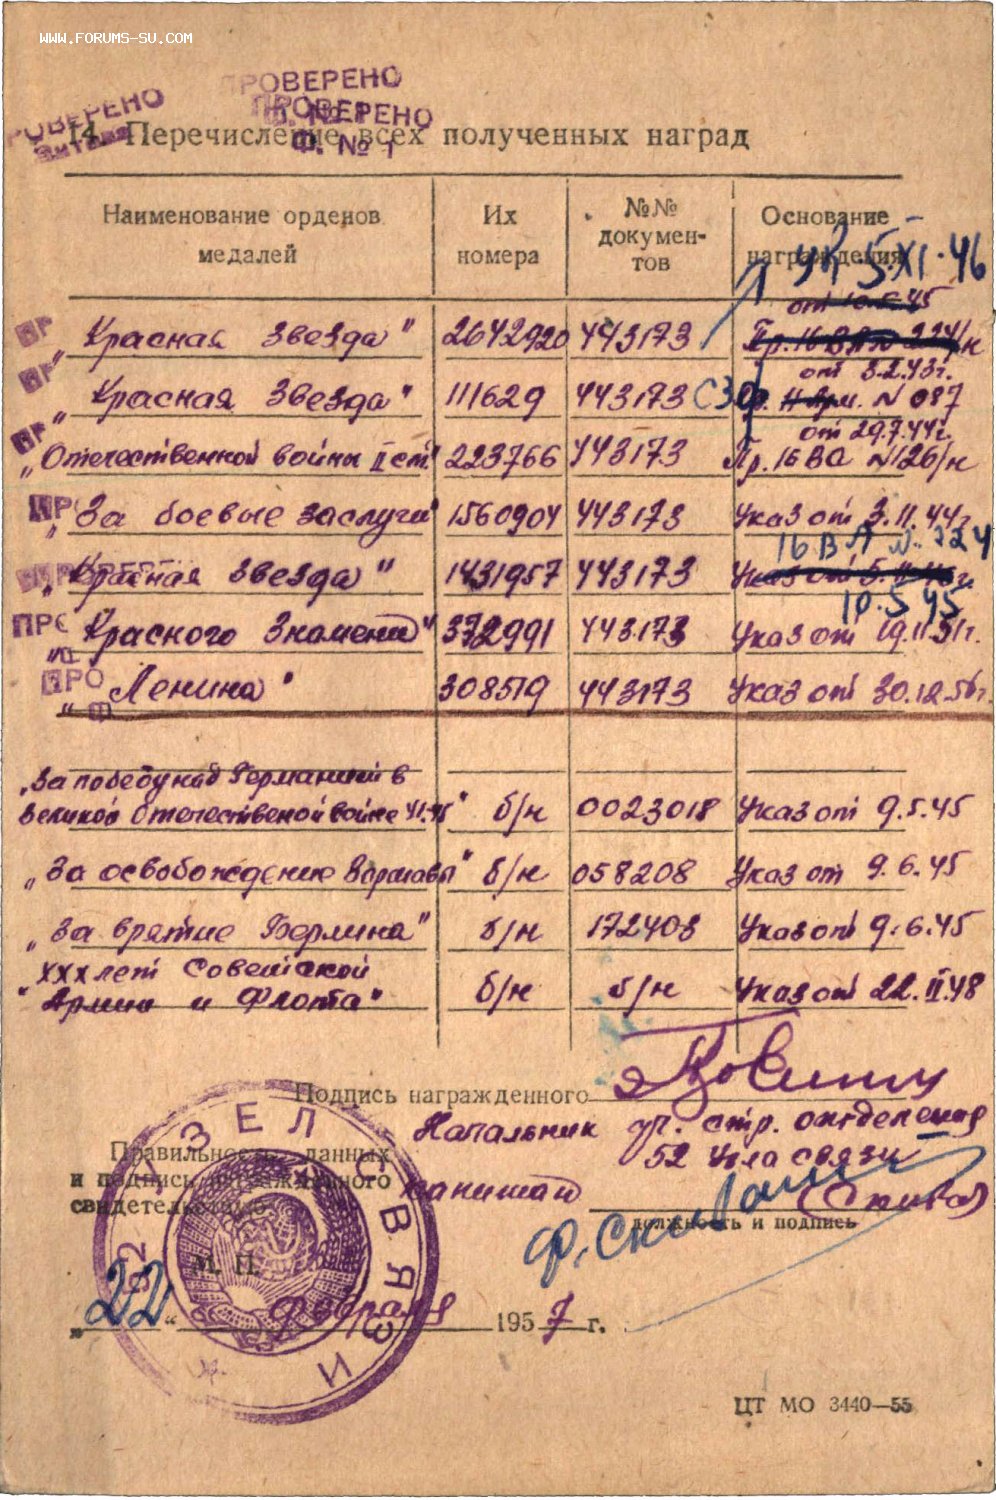 WWW.FORUMS-SU.COM
ПРОВЕРЕНО
ПРОВЕРЕНО
ПРОВЕРЕНО
Ф. № 1
14. Перечисление всех полученных наград
Наименование орденов медалей | Их номера | №№ документов | Основание награждения
Ук. 5.XI.46
от 10.5.45
„Красная Звезда" 2642920 443173 Пр. 16 ВА № 224/н
от 3.2.43г.
„Красная Звезда" 111629 443173 СЗФ. № 087
от 29.7.44г.
„Отечественной войны II ст." 223766 443173 Пр. 16 ВА №126/н
„За боевые заслуги" 1560904 443173 Указ от 3.11.44г.
16 ВА № 224
„Красная Звезда" 1431957 443173 Указ от 5.11.46г.
10.5.45
„Красного Знамени" 372991 443173 Указ от 19.11.51г.
„Ленина" 308519 443173 Указ от 30.12.56г.
„За победу над Германией в
Великой Отечественной войне 41.45" б/н 0023018 Указ от 9.5.45
„За освобождение Варшавы" б/н 058208 Указ от 9.6.45
„За взятие Берлина" б/н 172403 Указ от 9.6.45
„XXX лет Советской
Армии и Флота" б/н б/н Указ от 22.II.48
Подпись награжденного
Начальник стр. отделения
52 Узла связи
Правильность данных
и подпись награжденного
свидетельствую
капитан
должность и подпись
М. П.
52 УЗЕЛ СВЯЗИ
„22" Февраля 1957 г.
ЦТ МО 3440—55